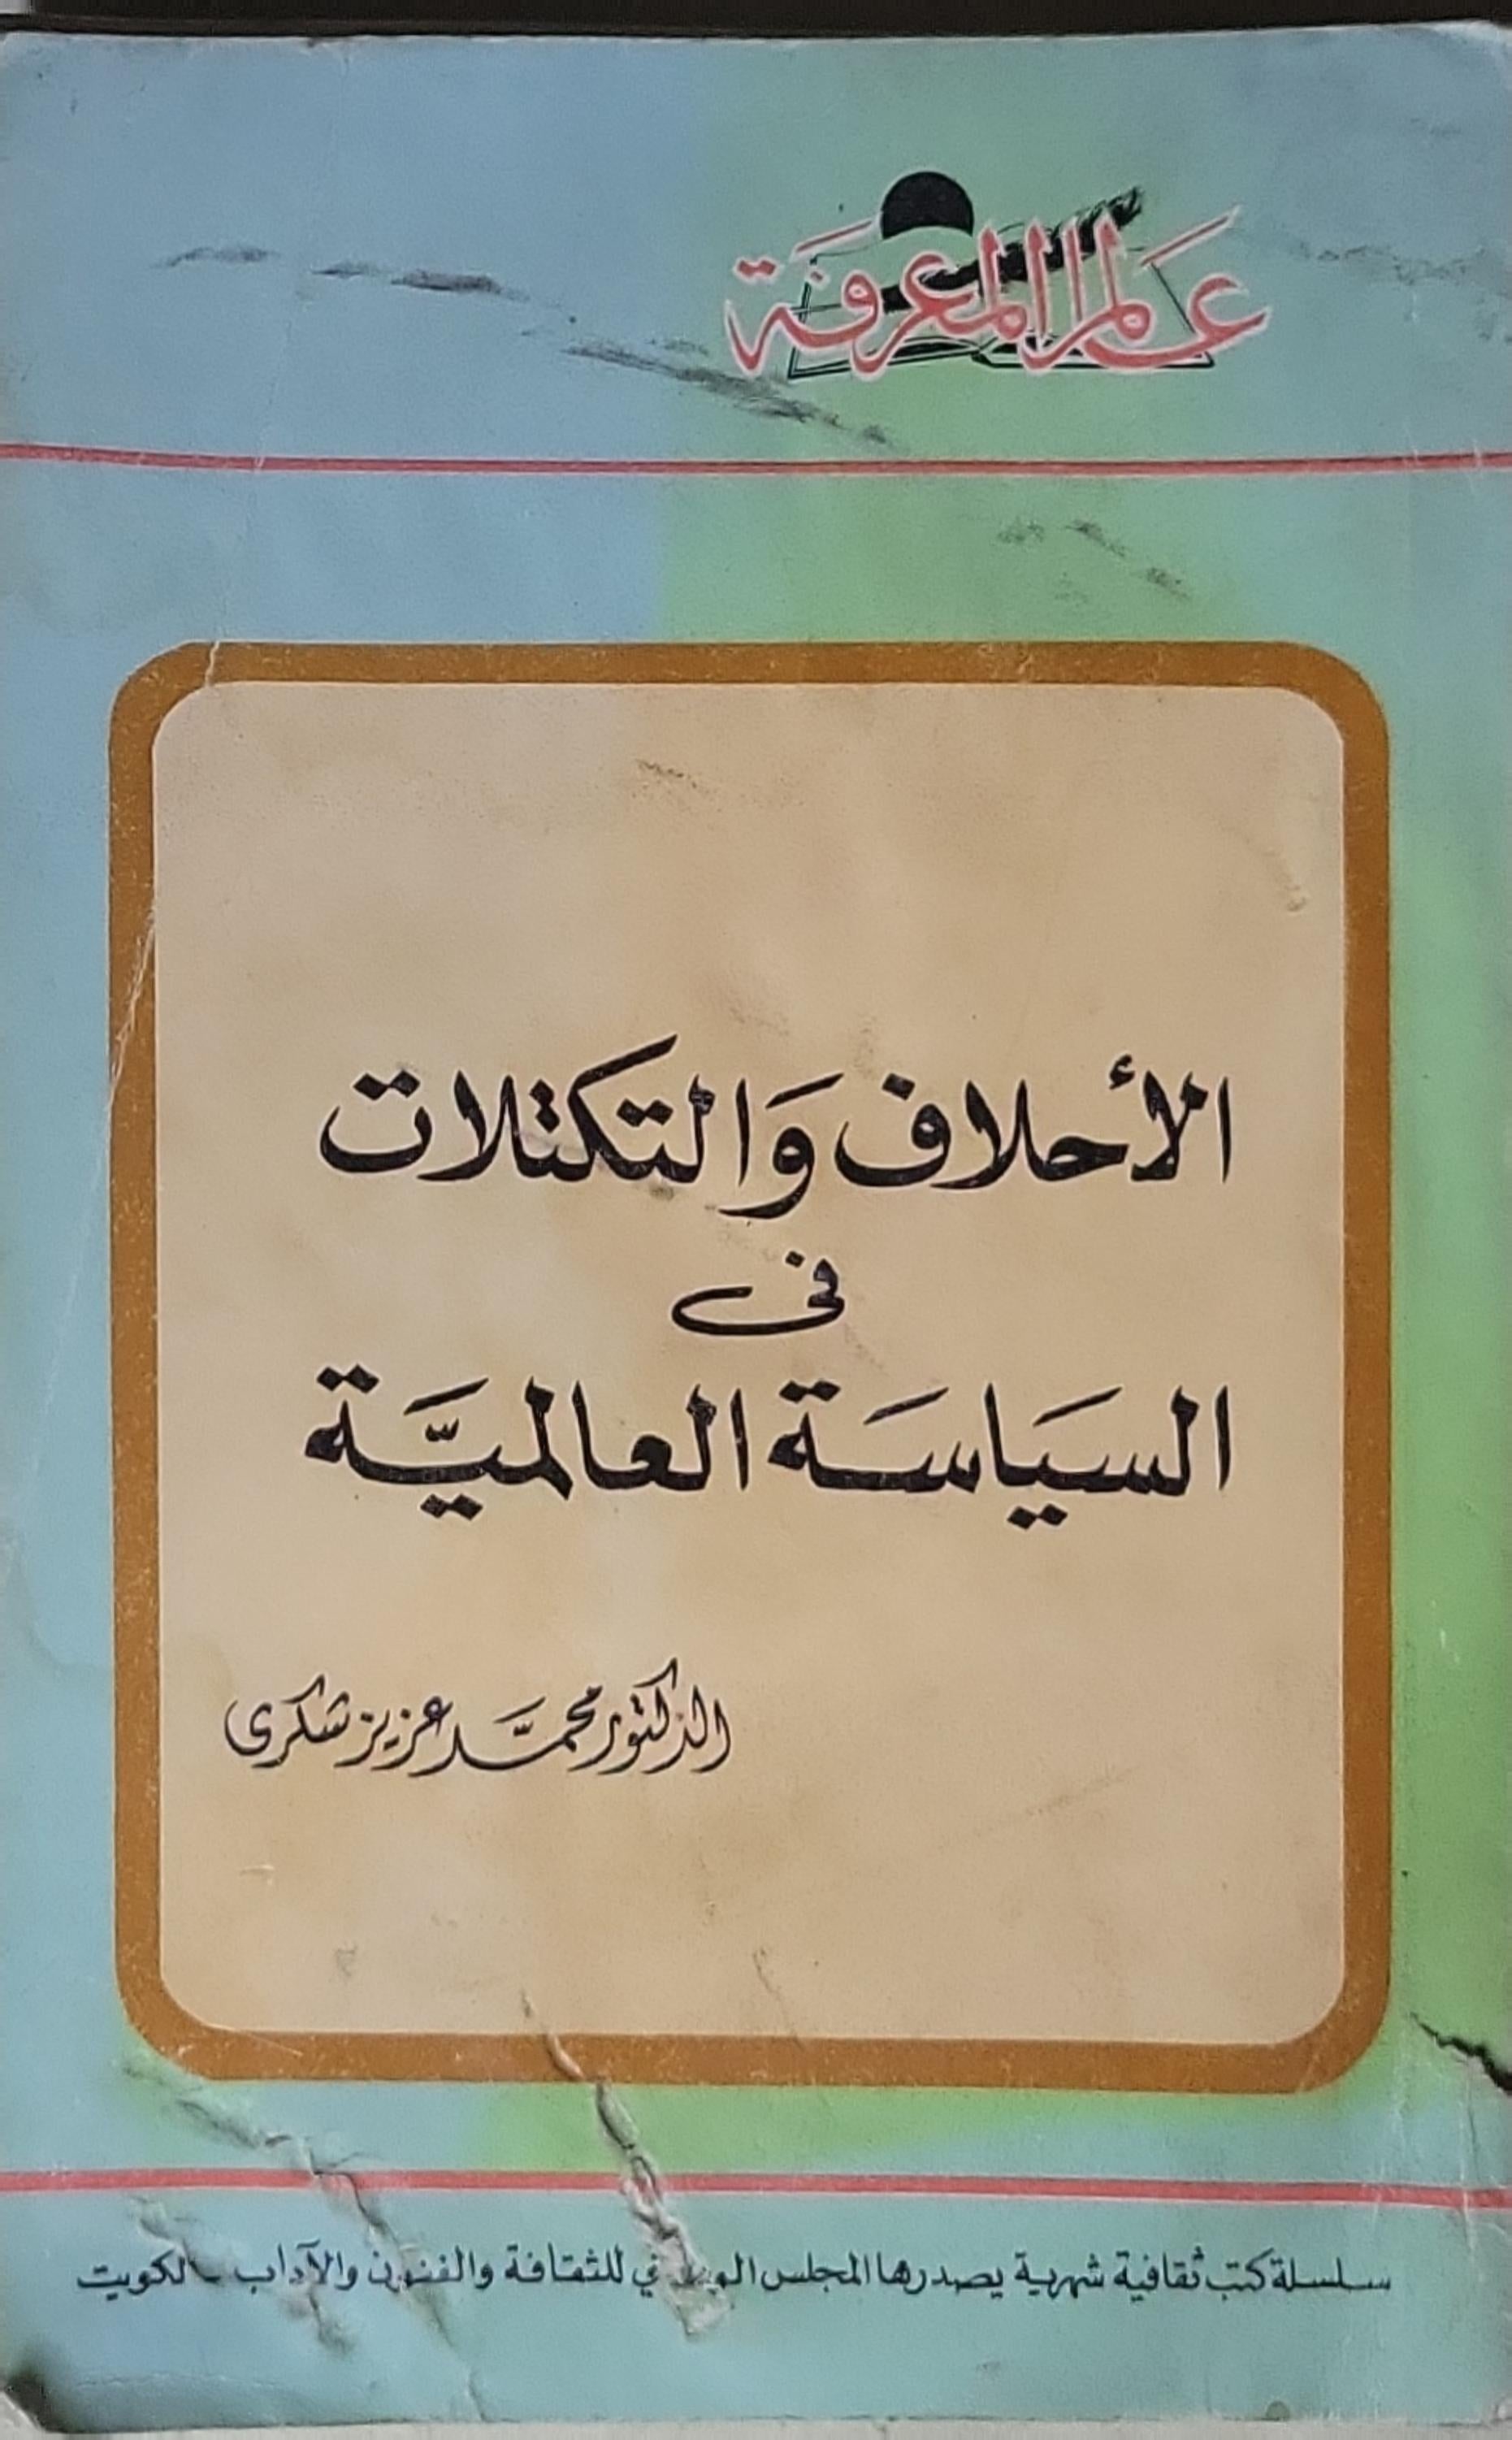 عالم المعرفة
الأحلاف وَالتكتلات
فى
السيَاسَة العالميَّة
الدكتور محمَّد عزيز شكرى
سلسلة كتب ثقافية شهرية يصدرها المجلس للثقافة والفنون والآداب - الكويت